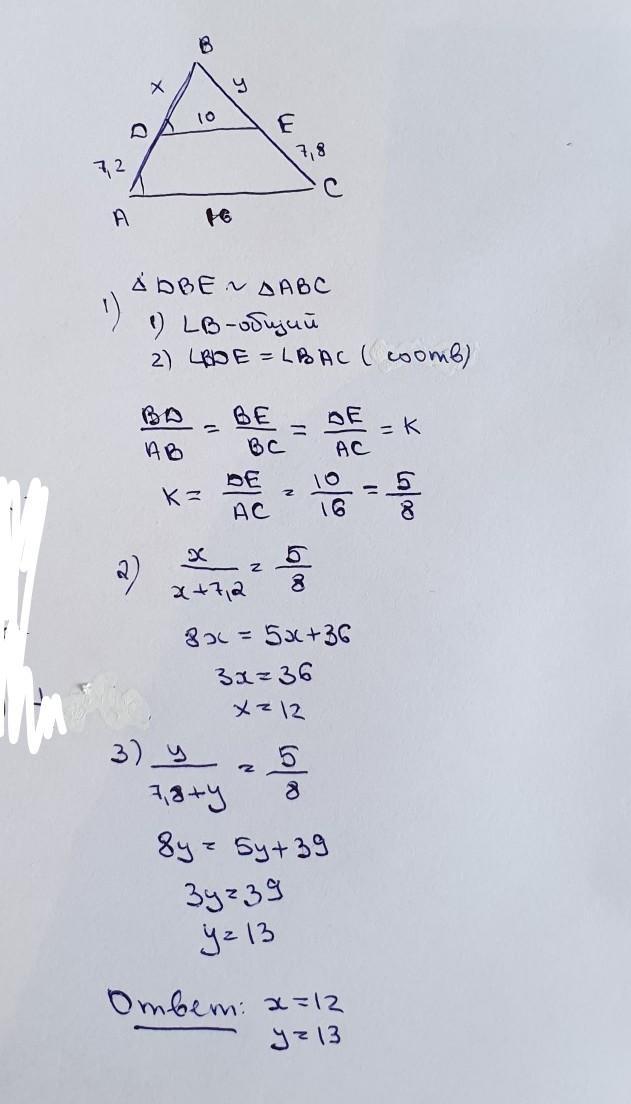 B
x
y
D
10
E
7,2
7,8
A
16
C
1) △DBE ~ △ABC
1) ∠B-общий
2) ∠BDE = ∠BAC (соотв)
BD/AB = BE/BC = DE/AC = K
K = DE/AC = 10/16 = 5/8
2) x/x+7,2 = 5/8
8x = 5x+36
3x=36
x=12
3) y/7,8+y = 5/8
8y = 5y+39
3y=39
y=13
Ответ: x=12
y=13